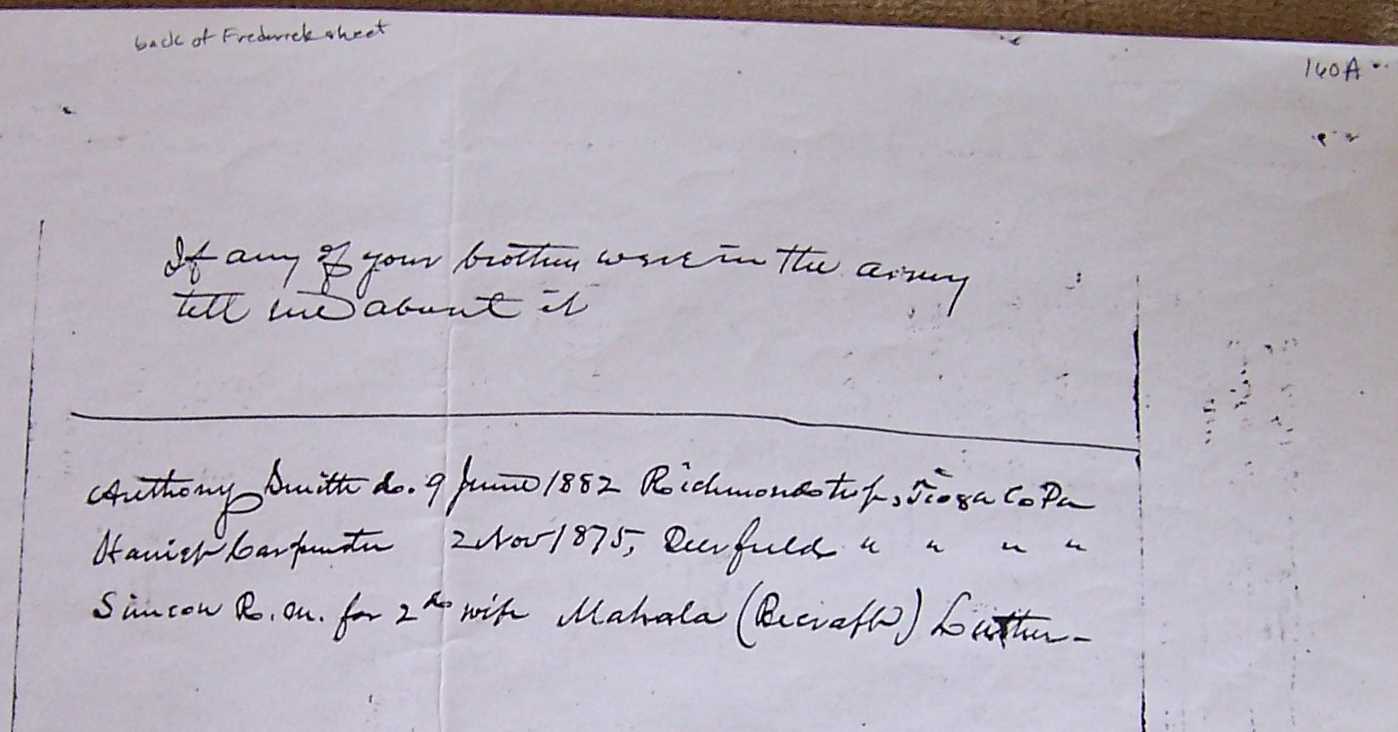 back of Frederick sheet
160A
If any of your brothers were in the army
tell me about it
Anthony Smith d. 9 June 1882 Richmond twp, Tioga Co Pa
Carpenter 2 Nov 1875, Deerfield " " " "
Simeon R. m. for 2d wife Mahala (Becraft) Luther -